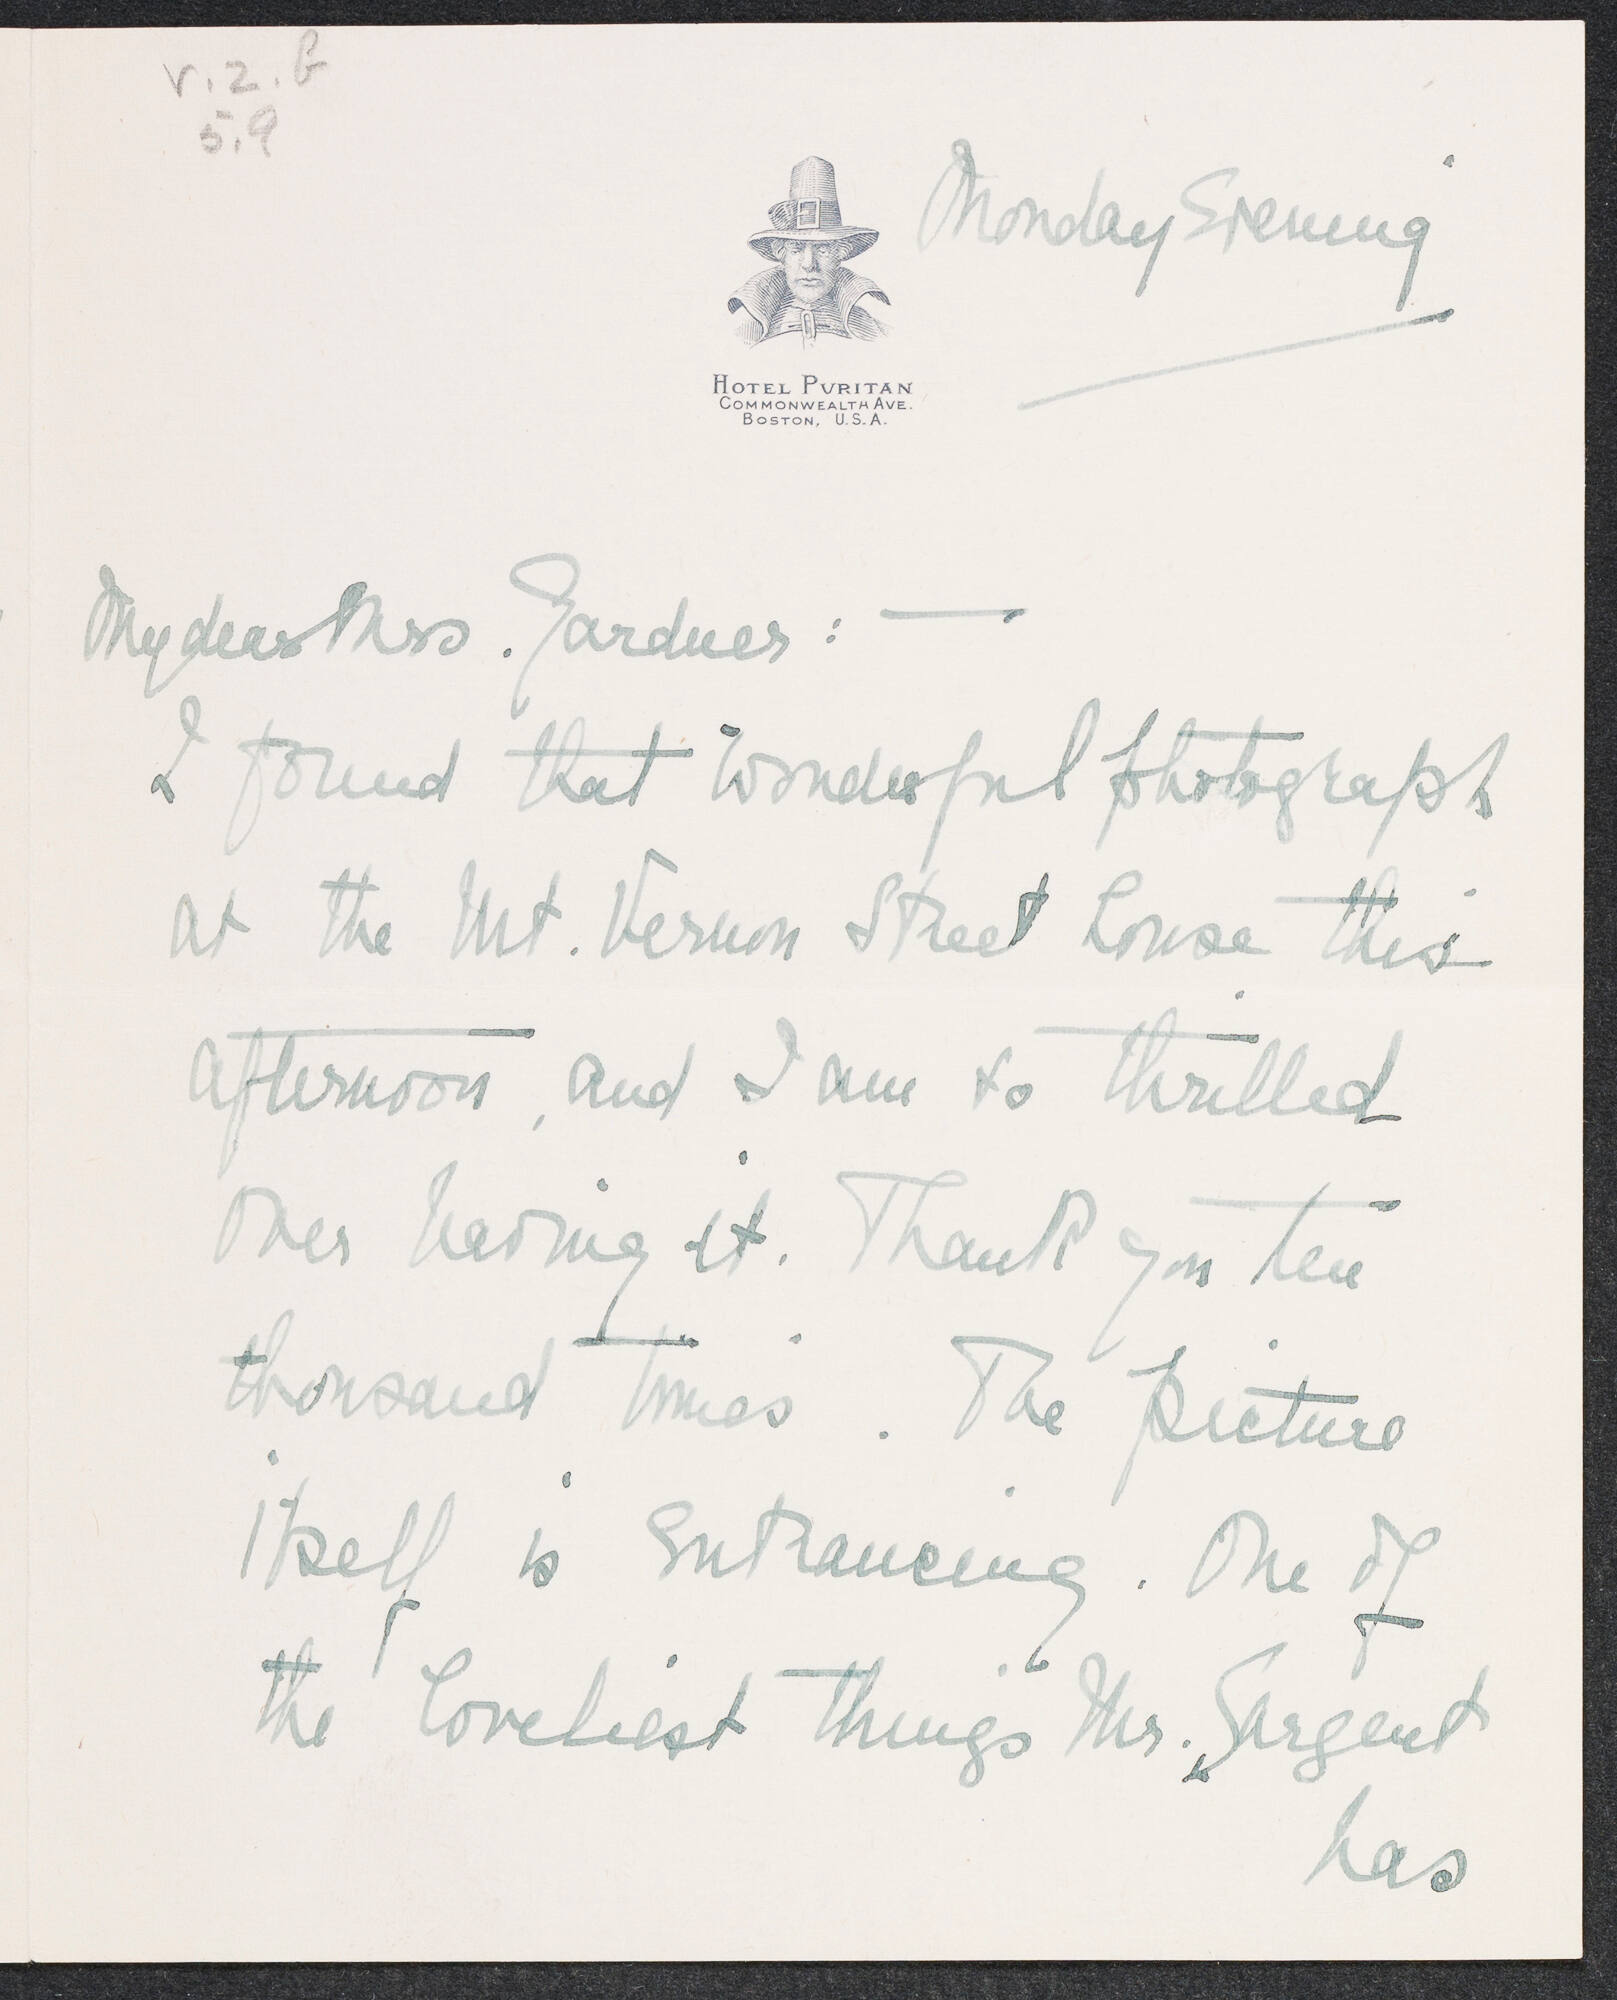 v.2.G
5.9
Monday Evening
HOTEL PVRITAN
COMMONWEALTH AVE.
BOSTON, U.S.A.
My dear Mrs. Gardner: —
I found that wonderful photograph
at the Mt. Vernon Street house this
afternoon, and I am so thrilled
over having it. Thank you ten
thousand times. The picture
itself is entrancing. One of
the loveliest things Mr. Sargent
has